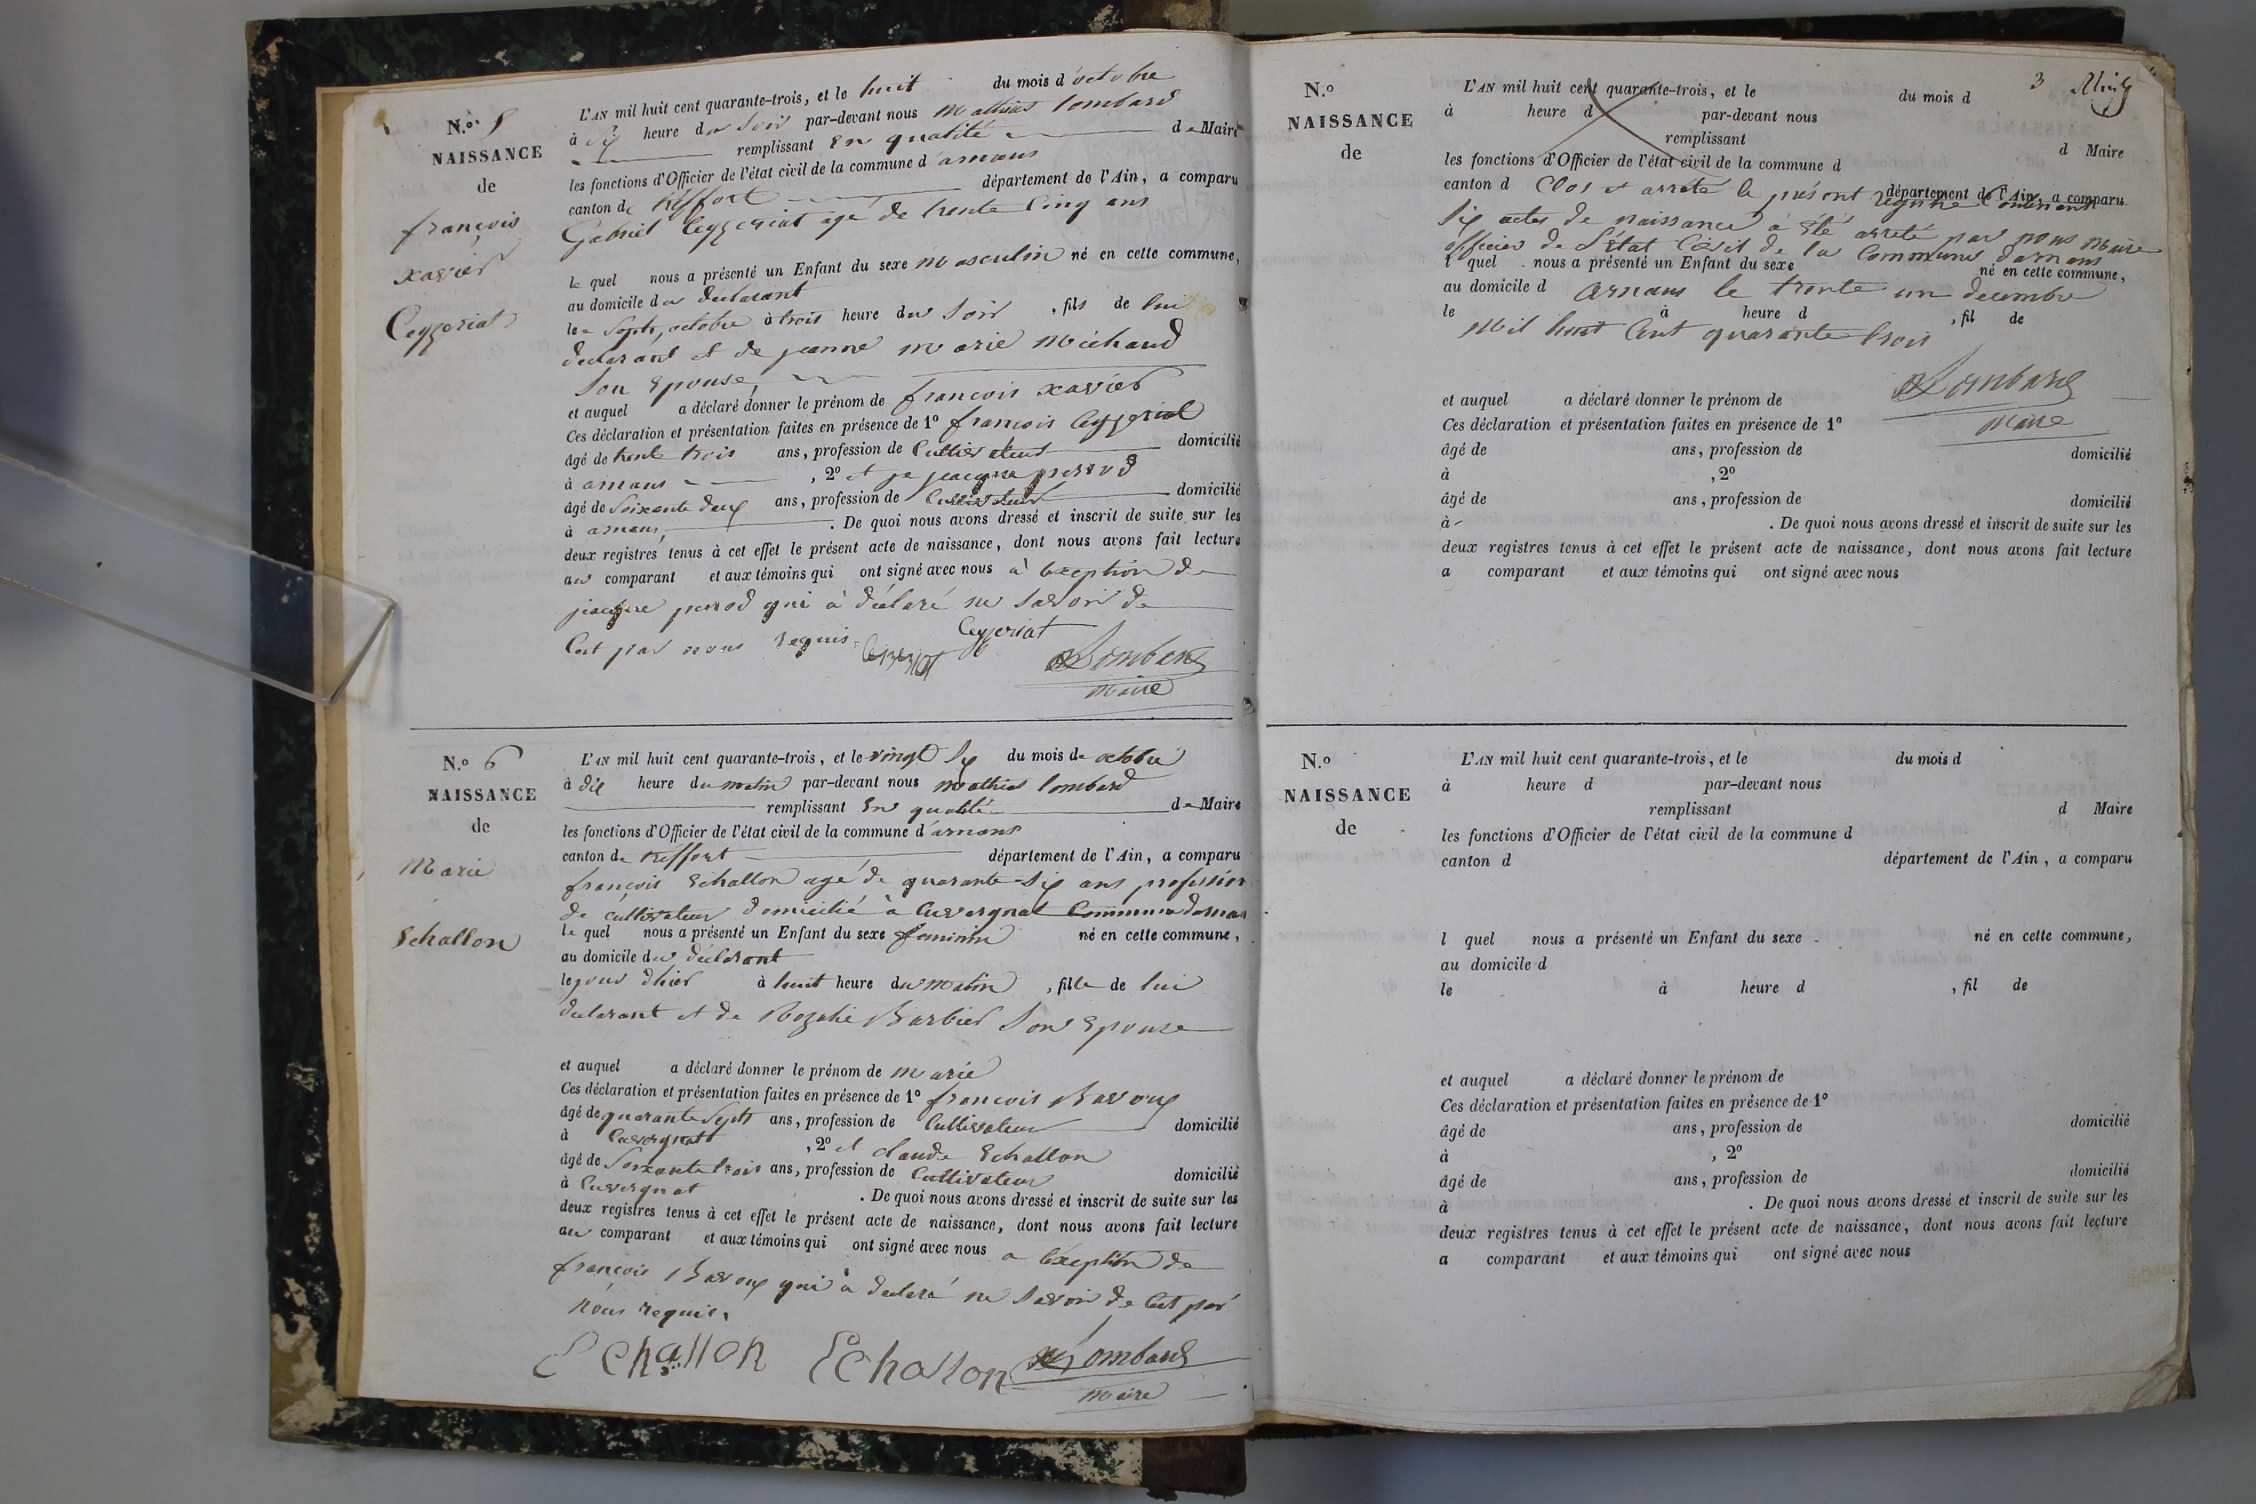 N.º 5
NAISSANCE
de
françois
xavier
Ceyzeriat
L'AN mil huit cent quarante-trois, et le huit du mois d'octobre
à six heure du Soir par-devant nous mathieu Lombard
remplissant En qualité de Maire
les fonctions d'Officier de l'état civil de la commune d'arnans
canton de treffort département de l'Ain, a comparu
Gabriel Ceyzeriat agé de trente Cinq ans
le quel nous a présenté un Enfant du sexe masculin né en cette commune,
au domicile du déclarant
le Sept octobre à trois heure du Soir, fils de lui
déclarant et de jeanne marie michaud
Son Epouse
et auquel a déclaré donner le prénom de françois xavier
Ces déclaration et présentation faites en présence de 1º françois Ceyzeriat
âgé de trente trois ans, profession de Cultivateur domicilié
à arnans, 2º et jacque perrod
âgé de Soixante deux ans, profession de Cultivateur domicilié
à arnans. De quoi nous avons dressé et inscrit de suite sur les
deux registres tenus à cet effet le présent acte de naissance, dont nous avons fait lecture
au comparant et aux témoins qui ont signé avec nous à lexception de
jacque perrod qui à déclaré ne Savoir de
Cet par nous requis.
Ceyzeriat
Lombard
maire
N.º 6
NAISSANCE
de
Marie
Echallon
L'AN mil huit cent quarante-trois, et le vingt Six du mois de octobre
à dix heure du matin par-devant nous mathieu Lombard
remplissant En qualité de Maire
les fonctions d'Officier de l'état civil de la commune d'arnans
canton de treffort département de l'Ain, a comparu
françois Echallon agé de quarante-Six ans profession
de cultivateur domicilié à Cuvergnat Commune darnans
le quel nous a présenté un Enfant du sexe feminin né en cette commune,
au domicile du déclarant
le jour dhier à huit heure du matin, fille de lui
déclarant et de Rozalie Barbier Son Epouse
et auquel a déclaré donner le prénom de marie
Ces déclaration et présentation faites en présence de 1º françois Bavoux
âgé de quarante Sept ans, profession de Cultivateur domicilié
à Cuvergnat, 2º et claude Echallon
âgé de Soixante trois ans, profession de Cultivateur domicilié
à Cuvergnat. De quoi nous avons dressé et inscrit de suite sur les
deux registres tenus à cet effet le présent acte de naissance, dont nous avons fait lecture
au comparant et aux témoins qui ont signé avec nous a lexception de
françois Bavoux qui à déclaré ne Savoir de Cet par
nous requis.
Echallon Echalon Lombard
maire
3
N.º
NAISSANCE
de
L'AN mil huit cent quarante-trois, et le du mois d
à heure d par-devant nous
remplissant d Maire
les fonctions d'Officier de l'état civil de la commune d
canton d département de l'Ain, a comparu
Clos et arreté le présent registre Contenant
Six actes de naissance à été arreté par nous maire
officier de l'état Civil de la Commune darnans
l quel nous a présenté un Enfant du sexe né en cette commune,
au domicile d
arnans le trente un decembre
le à heure d, fil de
Mil huit Cent quarante trois
Lombard
maire
et auquel a déclaré donner le prénom de
Ces déclaration et présentation faites en présence de 1º
âgé de ans, profession de domicilié
à, 2º
âgé de ans, profession de domicilié
à. De quoi nous avons dressé et inscrit de suite sur les
deux registres tenus à cet effet le présent acte de naissance, dont nous avons fait lecture
a comparant et aux témoins qui ont signé avec nous
N.º
NAISSANCE
de
L'AN mil huit cent quarante-trois, et le du mois d
à heure d par-devant nous
remplissant d Maire
les fonctions d'Officier de l'état civil de la commune d
canton d département de l'Ain, a comparu
l quel nous a présenté un Enfant du sexe né en cette commune,
au domicile d
le à heure d, fil de
et auquel a déclaré donner le prénom de
Ces déclaration et présentation faites en présence de 1º
âgé de ans, profession de domicilié
à, 2º
âgé de ans, profession de domicilié
à. De quoi nous avons dressé et inscrit de suite sur les
deux registres tenus à cet effet le présent acte de naissance, dont nous avons fait lecture
a comparant et aux témoins qui ont signé avec nous